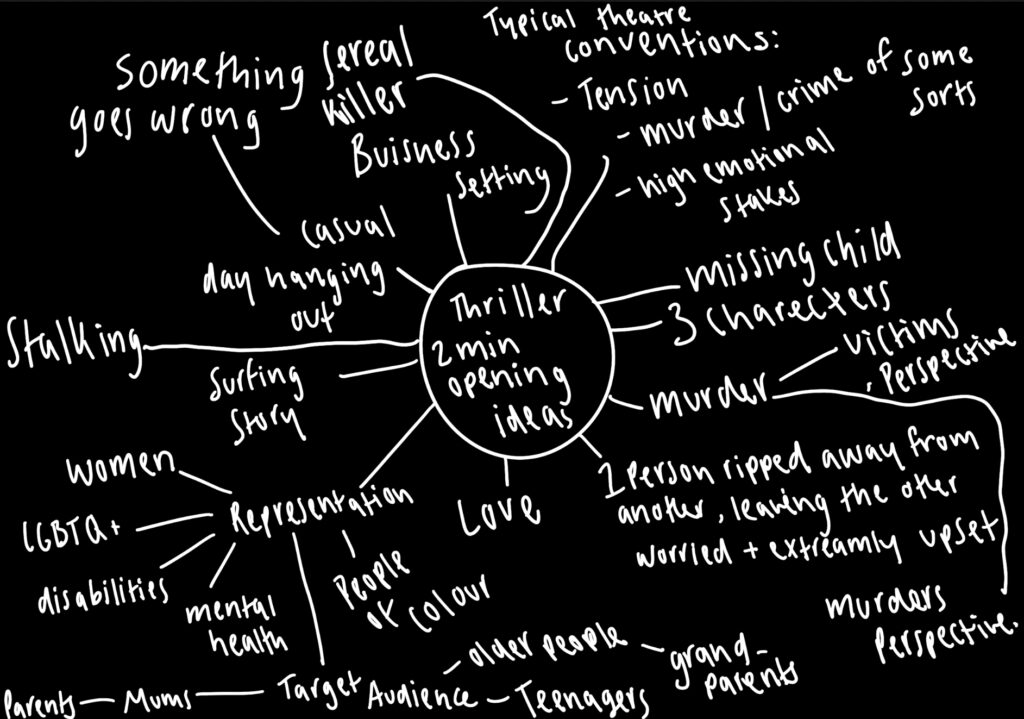 Typical theatre
conventions:
- Tension
- murder / crime of some
sorts
- high emotional
stakes
Something
goes wrong
Sereal
Killer
Buisness
setting
casual
day hanging
out
Stalking
Surfing
Story
Thriller
2 min
opening
ideas
missing child
3 charecters
murder
victims
perspective
murders
perspective.
1 Person ripped away from
another, leaving the other
worried + extreamly upset
Love
Representation
women
LGBTQ+
disabilities
mental
health
People
of colour
Target Audience
Mums
Parents
older people
grand-
parents
Teenagers